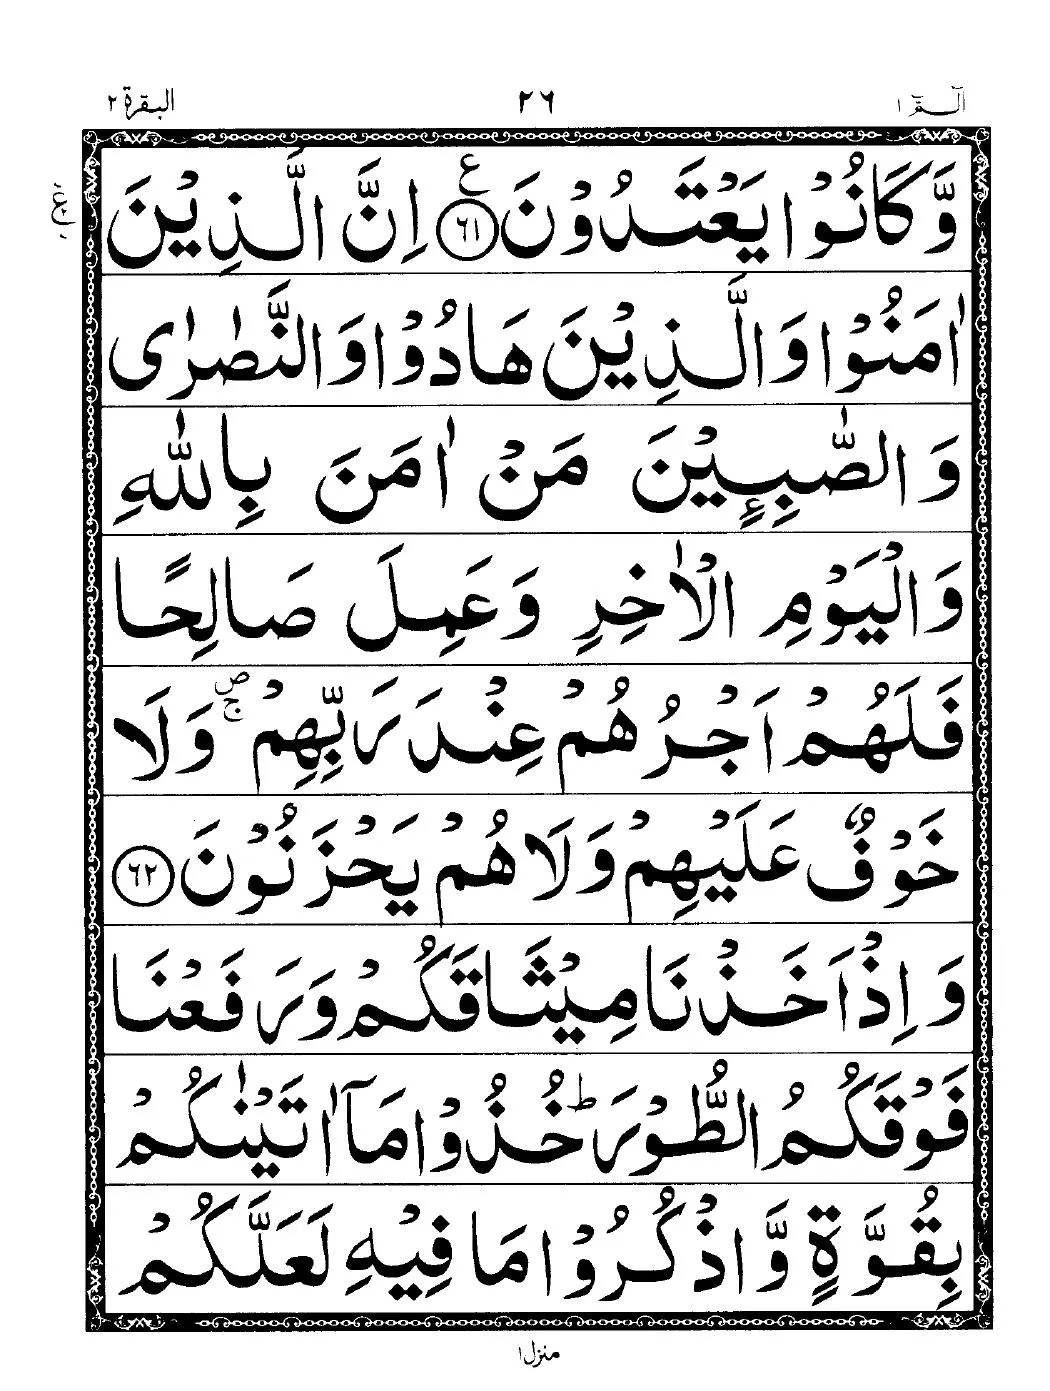 الٓـمّٓ ١ ٢٦ البقرة ٢
وَّكَانُوْا يَعْتَدُوْنَ ﴿٦١﴾ ع اِنَّ الَّذِيْنَ
اٰمَنُوْا وَالَّذِيْنَ هَادُوْا وَالنَّصٰرٰى
وَالصّٰبِـِٕيْنَ مَنْ اٰمَنَ بِاللّٰهِ
وَالْيَوْمِ الْاٰخِرِ وَعَمِلَ صَالِحًا
فَلَهُمْ اَجْرُهُمْ عِنْدَ رَبِّهِمْ ۚۖ وَلَا
خَوْفٌ عَلَيْهِمْ وَلَا هُمْ يَحْزَنُوْنَ ﴿٦٢﴾
وَاِذْ اَخَذْنَا مِيْثَاقَكُمْ وَرَفَعْنَا
فَوْقَكُمُ الطُّوْرَ ؕ خُذُوْا مَآ اٰتَيْنٰكُمْ
بِقُوَّةٍ وَّاذْكُرُوْا مَا فِيْهِ لَعَلَّكُمْ
منزل ١